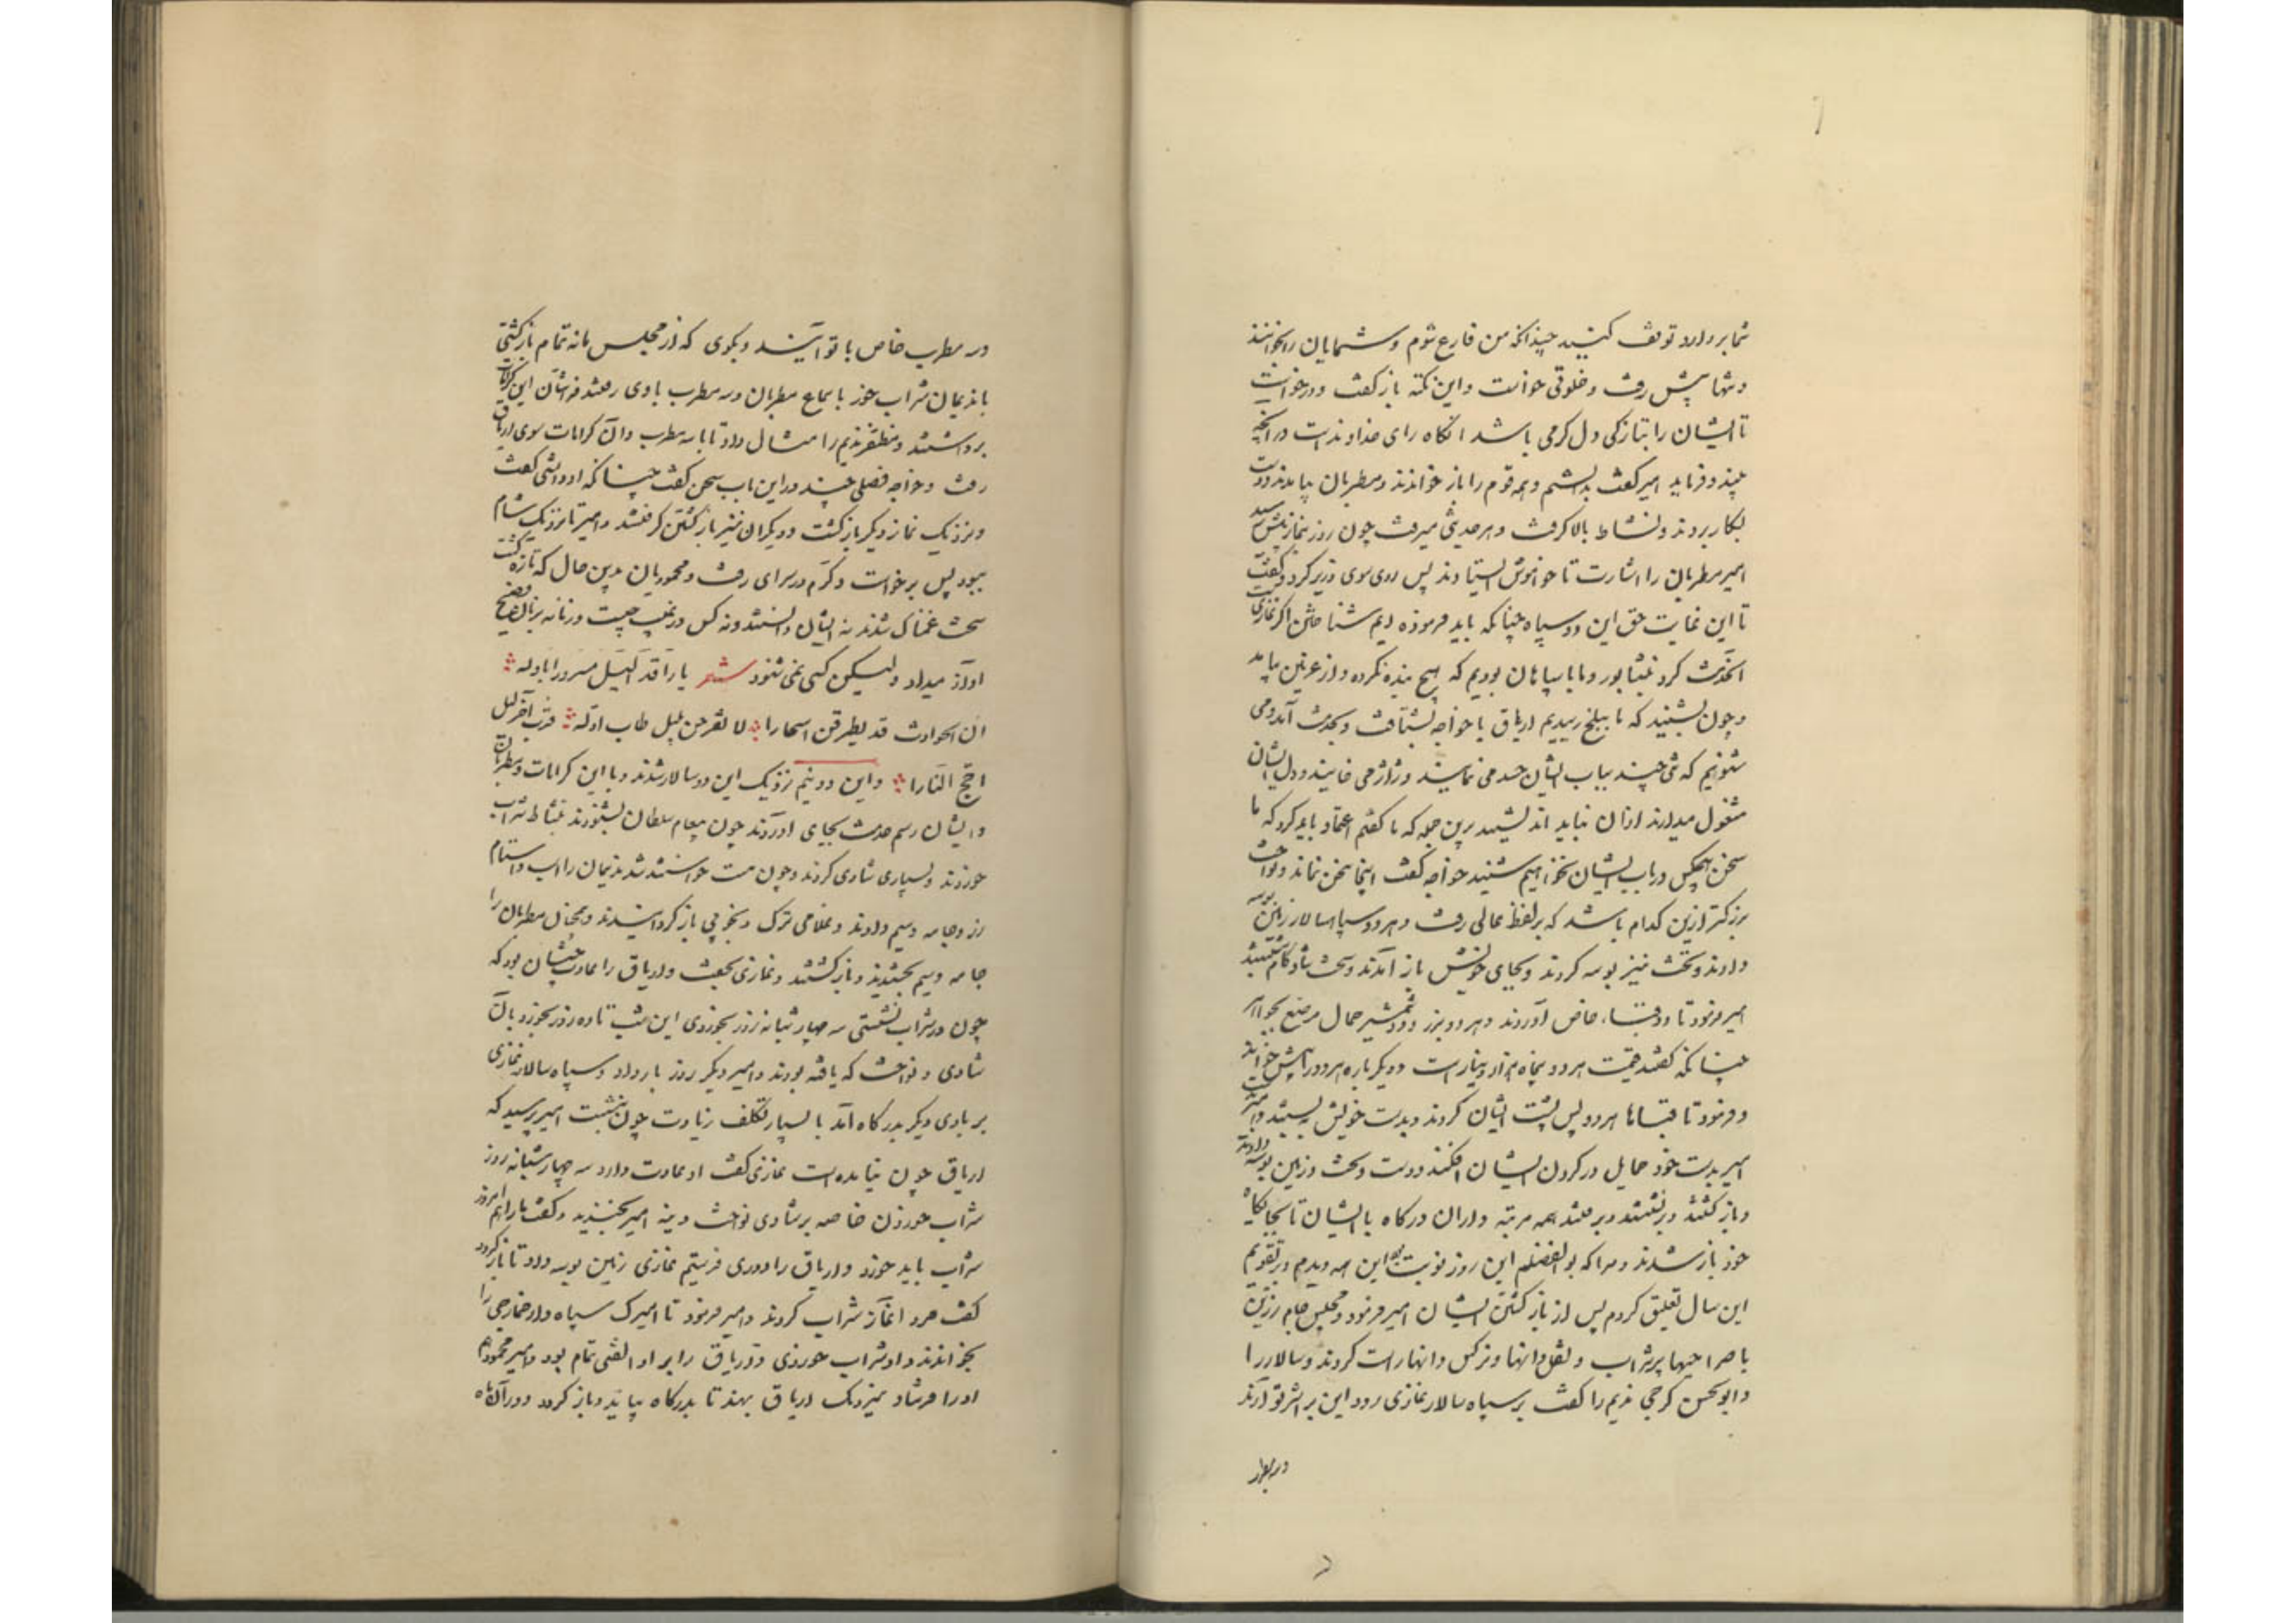 شما بر دارد توقف کنید چندانکه من فارغ شوم و شمایان را بخوانند
و تنها پیش رفت و خلوتی خواست و این نکته باز گفت و درخواست
تا ایشان را بتازگی دل گرمی باشد آنگاه رای خداوندست در آنچه
بیند و فرماید امیر گفت بدانستم و همه قوم را باز خواندند و مطربان بیامدند و دست
بکار بردند و نشاط بالا گرفت و هر حدیثی میرفت چون روز بنماز پیشین رسید
امیر مطربان را اشارت تا خاموش ایستادند پس روی سوی وزیر کرد و گفت
تا این غایت حق این دو سپاه چنانکه باید فرموده ایم شناختن اگر غازی
آنخدمت کرد بنشابور و ما باسپاهان بودیم که هیچ بنده نکرده و از غزنین بیامد
و چون بشنید که ما ببلخ رسیدیم اریاق با خواجه بشتافت و بخدمت آمد و می
شنویم که تنی چند بباب ایشان حسد می نمایند و ژاژ می خایند و دل ایشان
مشغول میدارند از آن نباید اندیشید برین جمله که ما گفتیم اعتماد باید کرد که ما
سخن هیچکس در باب ایشان نخواهیم شنید خواجه گفت اینجا سخن نماند و نواخت
بزرگتر ازین کدام باشد که بر لفظ عالی رفت و هر دو سپاهسالار زمین بوسه
دادند و تخت نیز بوسه کردند و بجای خویش باز آمدند و سخت شادکام بنشستند
امیر فرمود تا دو قباء خاص آوردند و هر دو بزر و دو شمشیر حمایل مرصع بجواهر
چنانکه گفتند قیمت هر دو پنجاه هزار دینارست و دیگر باره هر دو را پیش خواند
و فرمود تا قباها هر دو پس پشت ایشان کردند و بدست خویش ببستند و
امیر بدست خود حمایل در گردن ایشان افکند و دست و تخت و زمین بوسه دادند
و باز گشتند و برنشستند و برفتند همه مرتبه داران درگاه با ایشان تا بجایگاه
خود باز شدند و مرا که بوالفضلم این روز نوبت بود این همه دیدم و بر تقویم
این سال تعلیق کردم پس از باز گشتن ایشان امیر فرمود دو مجلس جام زرین
با صراحیها پر شراب و نقل دانها و نرگس دانها راست کردند و سالار را
و ابوالحسن کرجی ندیم را گفت بر سپاه سالار غازی رو و این بر اثر تو آرند
و سه مطرب
و سه مطرب خاص با تو آیند و بگوی که از مجلس ما نه تمام بازگشتی
با ندیمان شراب خور با سماع مطربان و سه مطرب با وی رفتند فراشان این کرامات
برداشتند و مظفر ندیم را مثال داد تا با سه مطرب و آن کرامات سوی اریاق
رفت و خواجه فضلی چند در این باب سخن گفت چنانکه او دانستی گفت
و نزدیک نماز دیگر بازگشت و دیگران نیز بازگشتن گرفتند و امیر تا نزدیک شام
ببود پس برخاست و گرم در سرای رفت و محمودیان بدین حال که تازه گشت
سخت غمناک شدند نه ایشان دانستند و نه کس که در غیب چیست و زمانه بزبان فصیح
آواز میداد ولیکن کسی نمی شنود شعر یا راقد اللیل مسرورا باوله
ان الحوادث قد یطرقن اسحارا لا تفرحن بلیل طاب اوله فرب آخر لیل
اجج النارا و این دو ندیم نزدیک این دو سالار شدند و با این کرامات و مطربان
و ایشان رسم خدمت بجای آوردند چون پیغام سلطان بشنودند بنشاط شراب
خوردند و بسیاری شادی کردند و چون مست خواستند شد ندیمان را اسب و ستام
زر و جامه و سیم دادند و غلامی ترک و بخوبی باز گردانیدند و همچنان مطربان را
جامه و سیم بخشیدند و باز گشتند و غازی بخفت و اریاق را عادت چنان بود که
چون در شراب نشستی سه چهار شبانه روز بخوردی این شب تا دو روز بخورد بآن
شادی و نواخت که یافته بودند و امیر دیگر روز بار داد و سپاه سالار غازی
بر بادی دیگر بدرگاه آمد با بسیار تکلف زیادت چون بنشست امیر پرسید که
اریاق چون نیامده است غازی گفت او عادت دارد سه چهار شبانه روز
شراب خوردن خاصه بر شادی نواخت دینه امیر بخندید و گفت ما را هم امروز
شراب باید خورد و اریاق را دوری فرستیم غازی زمین بوسه داد تا باز گردد
گفت مرو آغاز شراب کردند و امیر فرمود تا امیرک سپاه دار خمارچی را
بخواندند و او شراب خوردی و اریاق را بر او الفتی تمام بود و امیر محمود هم
او را فرستاد بنزدیک اریاق بهند تا بدرگاه بیاید و باز گردد و در آن ماه